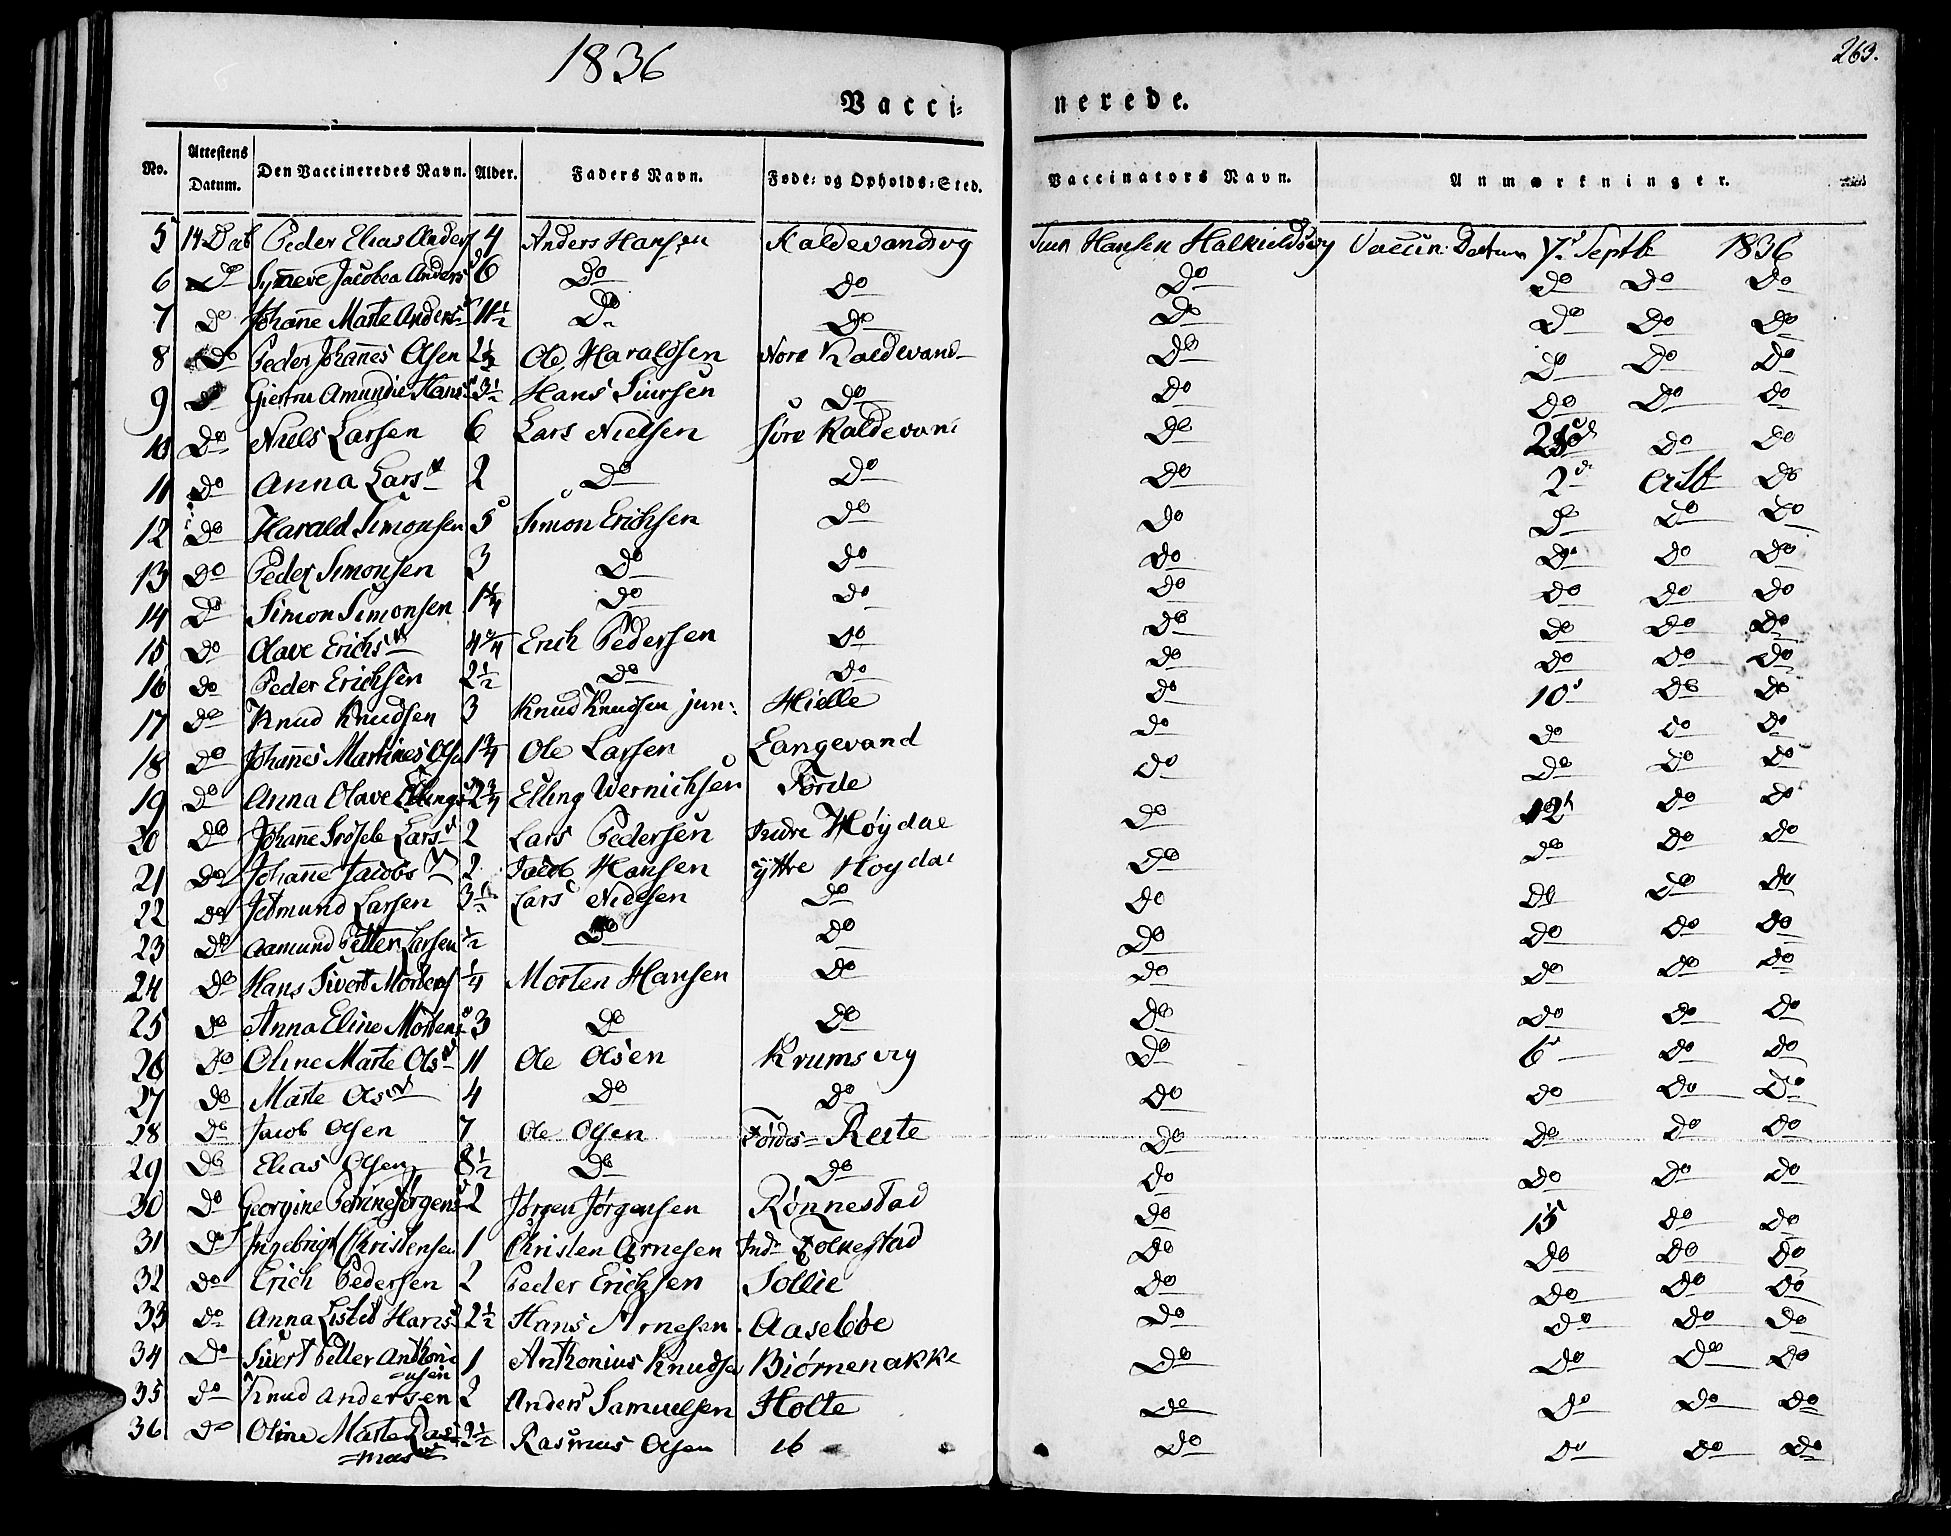 1836
263.
Vacci= nerede.
No. Attestens Datum. Den Vaccineredes Navn. Alder. Faders Navn. Føde= og Opholds=Sted. Vaccinators Navn. Anmærkninger.
5 14 Decb Peder Elias Anders 4 Anders Hansen Kaldevandsvg Hansen Vaccin: Dattum 7d Septb 1836
6 Do Synneve Jacobea Andersd 6 Do Do Do Do Do Do
7 Do Johanne Marte Andersd 11½ Do Do Do Do Do Do
8 Do Peder Johannes Olsen 2½ Ole Haraldsen Nore Kaldevand Do Do Do Do
9 Do Giertru Amundie Hansd 3½ Hans Siursen Do Do Do Do Do
10 Do Niels Larsen 6 Lars Nielsen Søre Kaldevand Do Do Do
11 Do Anna Larsd 2 Do Do Do 2d Do
12 Do Harald Simonsen 5 Simon Erichsen Do Do Do Do Do
13 Do Peder Simonsen 3 Do Do Do Do Do Do
14 Do Simon Simonsen 1¼ Do Do Do Do Do Do
15 Do Olave Erichsd 4¾ Erich Pedersen Do Do Do Do Do
16 Do Peder Erichsen 2½ Do Do Do Do Do Do
17 Do Knud Knudsen 3 Knud Knudsen jun: Hielle Do 10d Do Do
18 Do Johannes Martines Olsen 1¾ Ole Larsen Langevand Do Do Do Do
19 Do Anna Olave Ellingsd 2¾ Elling Wernichsen Førde Do Do Do Do
20 Do Johanne Larsd 2 Lars Pedersen Indre Høydal Do 12d Do Do
21 Do Johanne Jacobsd 2 Jacob Hansen ÿttre Høydal Do Do Do Do
22 Do Jetmund Larsen 3½ Lars Nielsen Do Do Do Do Do
23 Do Aamund Petter Larsen ½ Do Do Do Do Do Do
24 Do Hans Sivert Mortens ¼ Morten Hansen Do Do Do Do Do
25 Do Anna Eline Mortensd 3 Do Do Do Do Do Do
26 Do Oline Marte Olsd 11 Ole Olsen Krumsvig Do 6d Do Do
27 Do Marte Olsd 4 Do Do Do Do Do Do
28 Do Jacob Olsen 7 Ole Olsen Førdes= Reite Do Do Do Do
29 Do Elias Olsen 8½ Do Do Do Do Do Do
30 Do Georgine Petrine Jørgensd 2 Jørgen Jørgensen Rønnestad Do 15 Do Do
31 Do Ingebrigt Christensen 1 Christen Arnesen Indr Folkestad Do Do Do Do
32 Do Erich Pedersen 2 Peder Erichsen Sollie Do Do Do Do
33 Do Anna Lisbet Hansd 2½ Hans Arnesen Aasebøe Do Do Do Do
34 Do Sivert Petter Anthoni= 1 Anthonius Knudsen Biørnenakke Do Do Do Do
=usen
35 Do Knud Andersen 2 Anders Samuelsen Holte Do Do Do Do
36 Do Oline Marte Ras= 2½ Rasmus Olsen ib Do Do Do Do
=musd